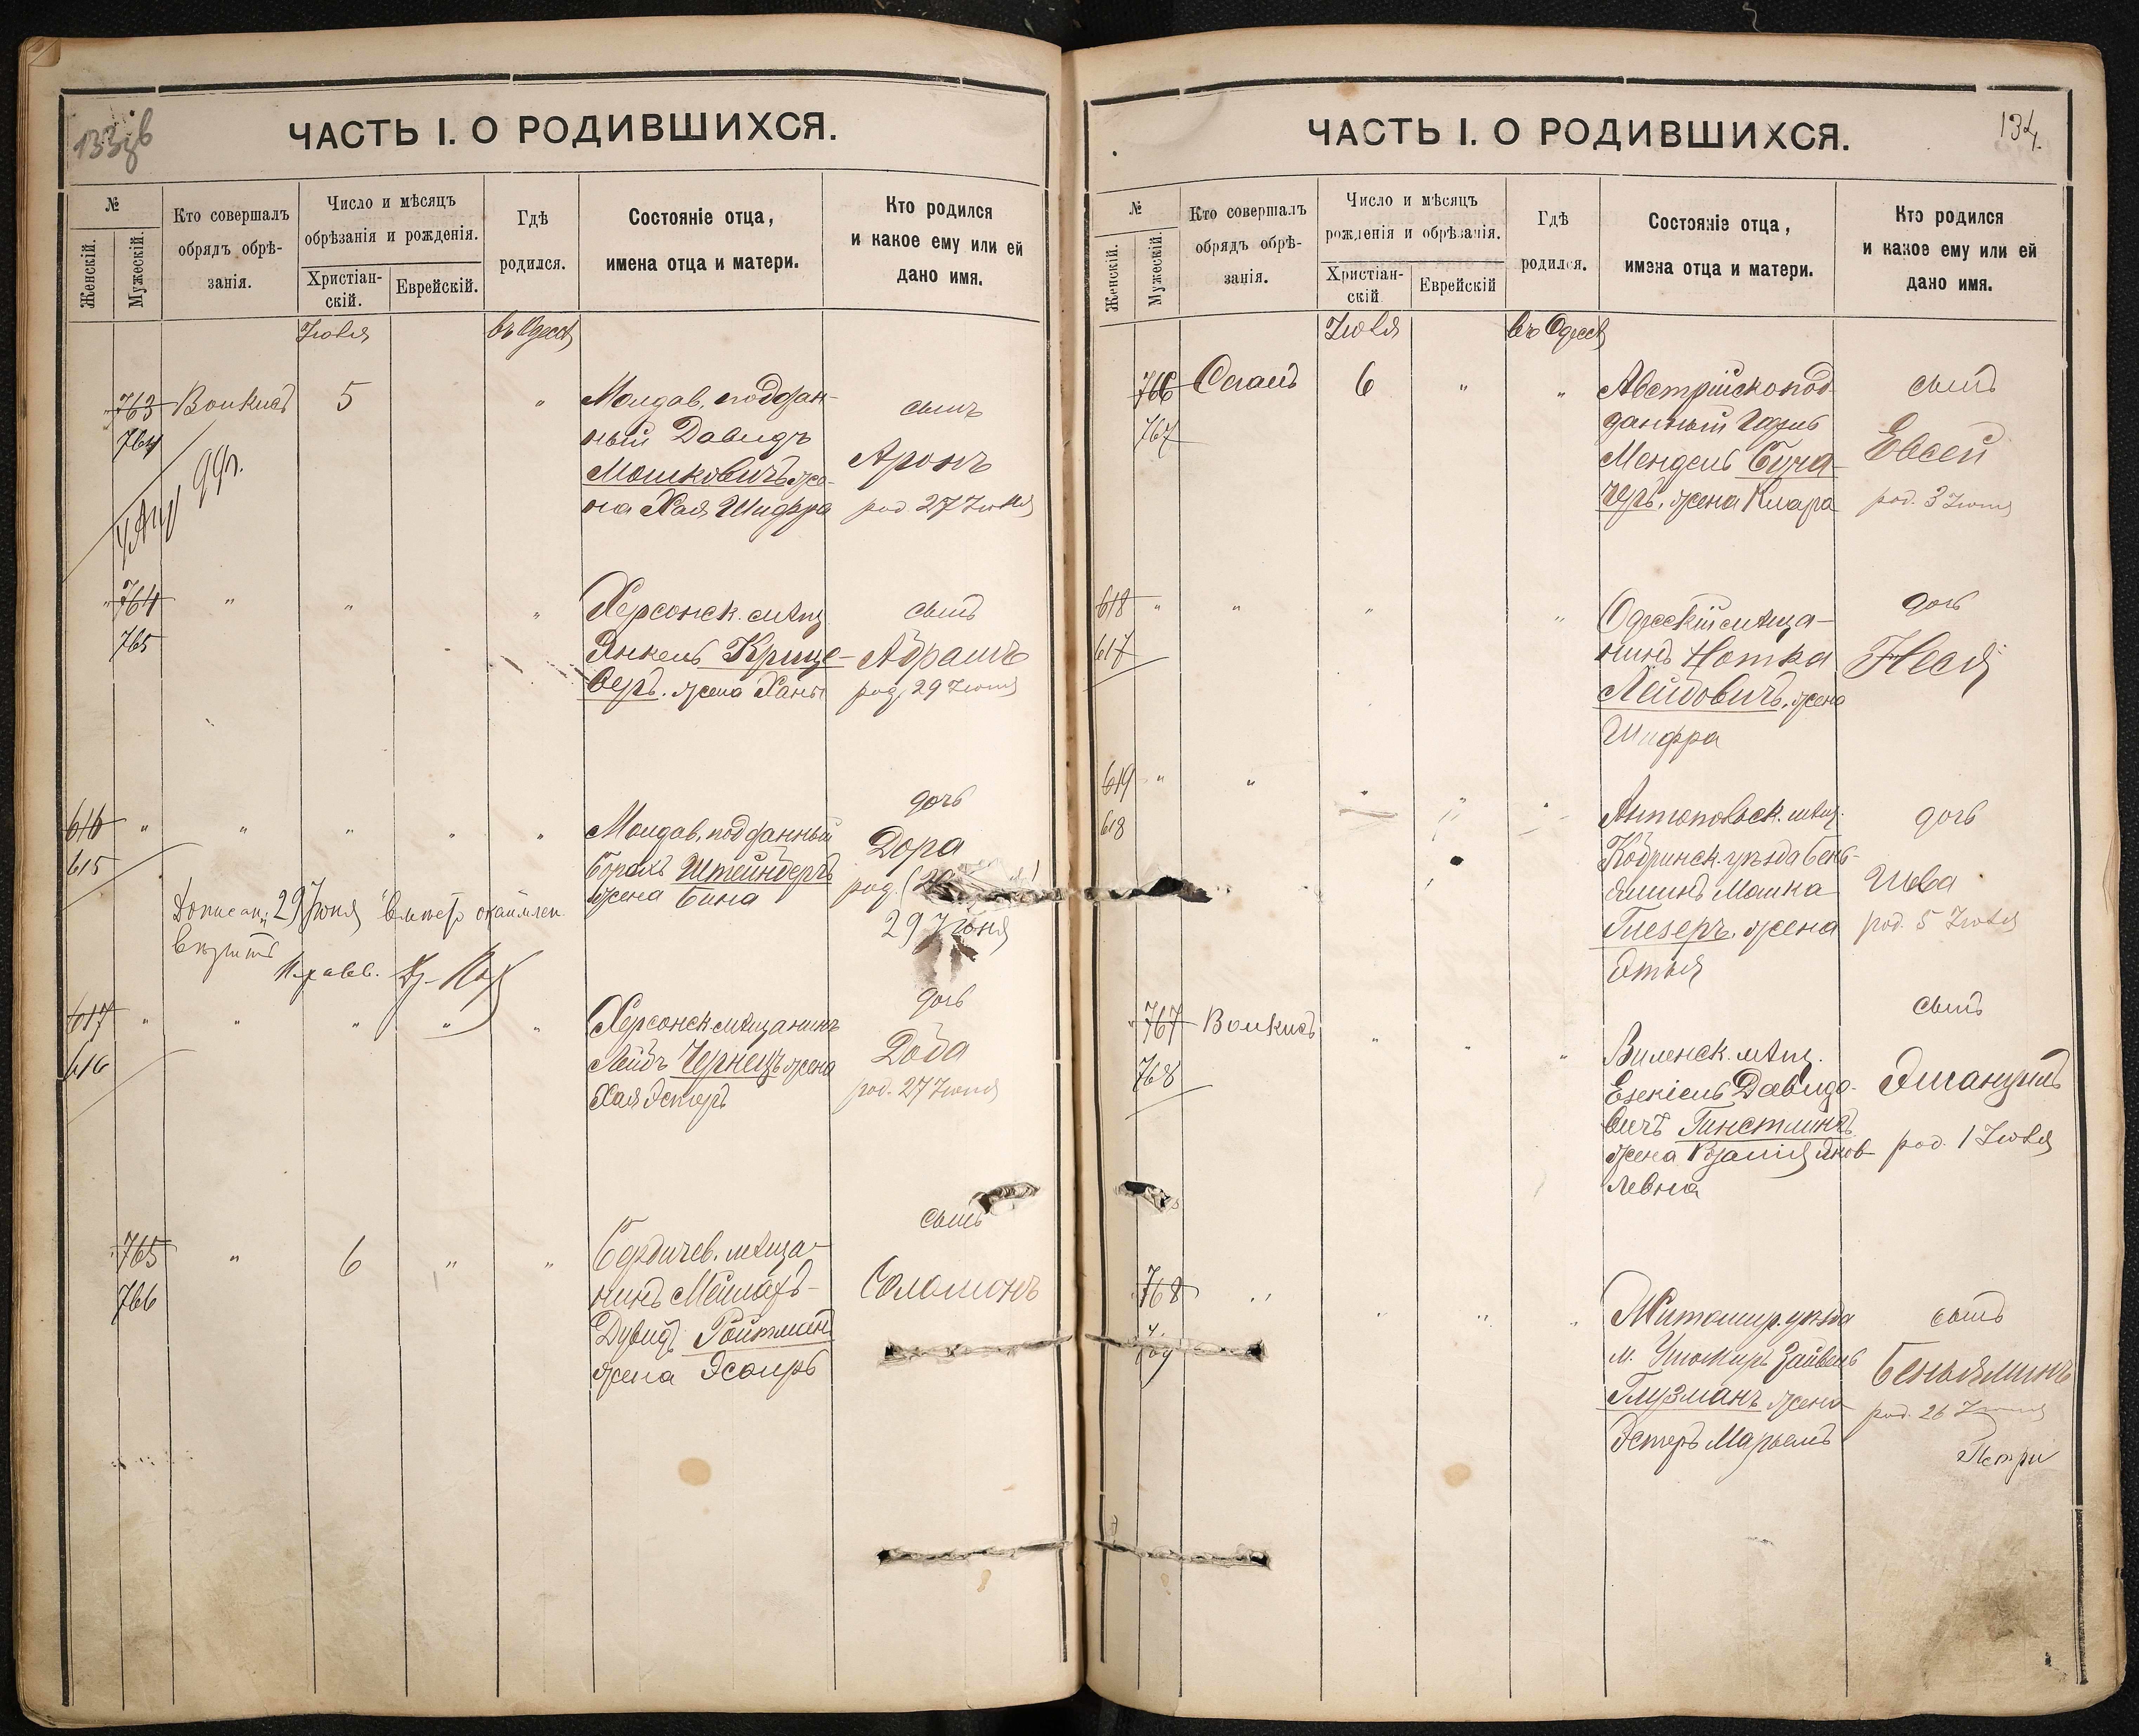 133 об
ЧАСТЬ I. О РОДИВШИХСЯ.
№
Женскій.
Мужескій.
Кто совершалъ обрядъ обрѣ-
занія.
Число и мѣсяцъ
обрѣзанія и рожденія.
Христіан-
скій.
Еврейскій.
Гдѣ
родился.
Состояніе отца,
имена отца и матери.
Кто родился
и какое ему или ей
дано имя.
Іюля
въ Одессѣ
763
764
5
"
Молдав. поддан-
ный Давидъ
Мошковичъ, же-
на Хая Шифра
сынъ
Аронъ
род 27 Іюня
" 764
765
"
"
"
Херсонск. мѣщ
Янкель Крице-
веръ. жена Ханы
сынъ
Абрамъ
род. 29 Іюня
616
615
"
"
"
"
"
Молдав. подданный
Борахъ Штейнбергъ
жена Бина
дочь
Дора
род.
29 Іюня
29 Іюня вмѣсто
617
616
"
"
"
"
"
Херсонск мѣщанинъ
Лейбъ Чернецъ жена
Хая Эстеръ
дочь
Доба
род. 27 Іюня
765
766
"
6
"
"
Бердичев. мѣща-
нинъ
Дувидъ Ройтманъ
жена Эсѳирь
сынъ
Соломонъ
134
ЧАСТЬ I. О РОДИВШИХСЯ.
№
Женскій.
Мужескій.
Кто совершалъ
обрядъ обрѣ-
занія.
Число и мѣсяцъ
рожденія и обрѣзанія.
Христіан-
скій
Еврейскій
Гдѣ
родился.
Состояніе отца,
имена отца и матери.
Кто родился
и какое ему или ей
дано имя.
Іюля
въ Одессѣ
766
767
6
"
"
Австрійскопод-
данный
Мендель
жена Клара
сынъ
Евсей
род. 3 Іюля
618
617
"
"
"
"
Одесскій мѣща-
нинъ Нотка
Лейбовичъ, жена
Шифра
дочь
Неся
619
618
"
"
"
"
"
Антопольск. мѣщ.
Кобринск. уѣзда Бень-
яминъ Мошка
Глезеръ. жена
дочь
Шева
род. 5 Іюля
767
768
"
"
"
Виленск. мѣщ.
Езекіель Давидо-
вичъ
жена Розалія Яков-
левна
сынъ
Эмануилъ
род. 1 Іюля
768
"
"
"
"
Житомир. уѣзда
м. Ушомиръ Зайвель
Глузманъ жена
Эстеръ Марьемъ
сынъ
Беньяминъ
род. 26 Іюня